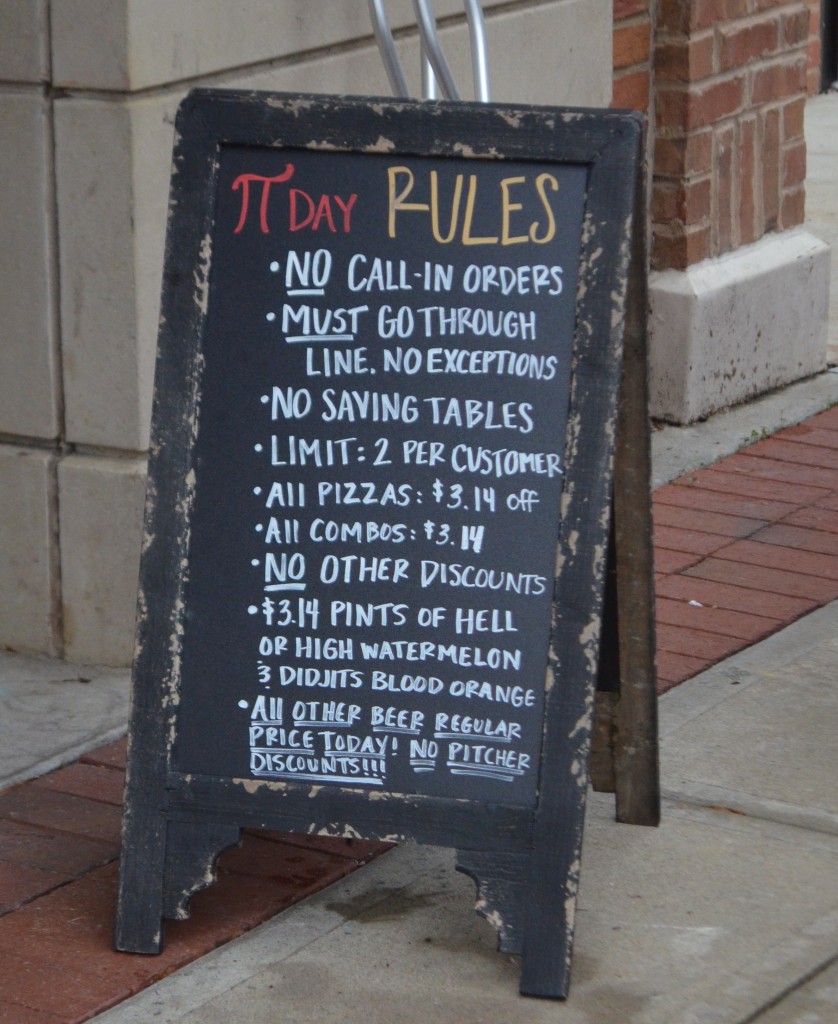 π DAY RULES
• NO CALL-IN ORDERS
• MUST GO THROUGH
LINE. NO EXCEPTIONS
• NO SAVING TABLES
• LIMIT: 2 PER CUSTOMER
• All PIZZAS: $3.14 off
• All COMBOS: $3.14
• NO OTHER DISCOUNTS
• $3.14 PINTS OF HELL
OR HIGH WATERMELON
& DIDJITS BLOOD ORANGE
• All OTHER BEER REGULAR
PRICE TODAY! NO PITCHER
DISCOUNTS!!!